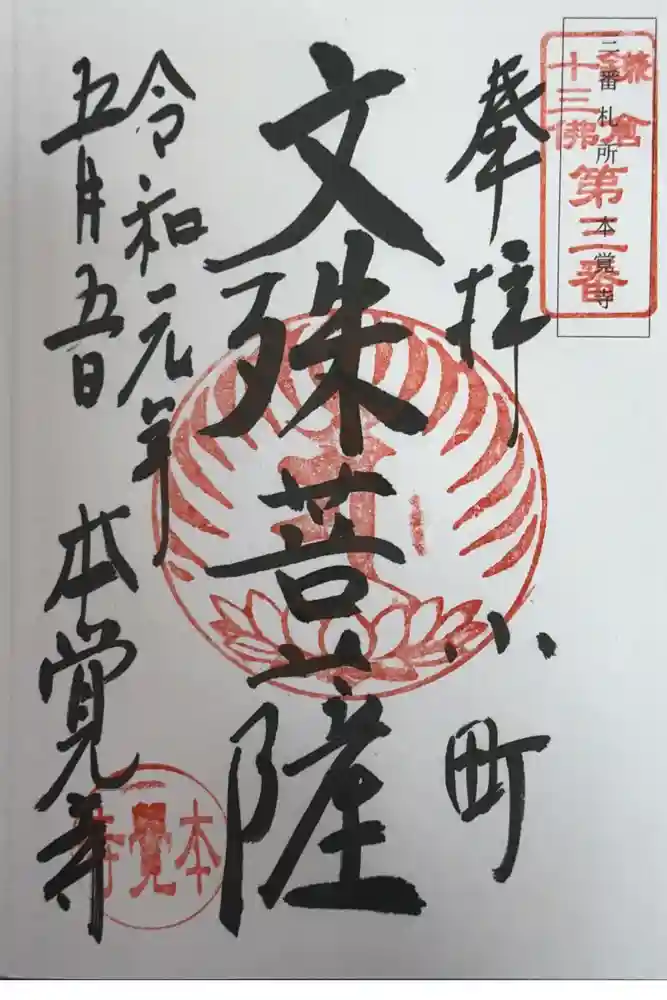 三番札所 本覚寺
鎌倉
十三佛
第三番
奉拝 小町
文殊菩薩
令和元年
五月五日 本覚寺
本覺寺